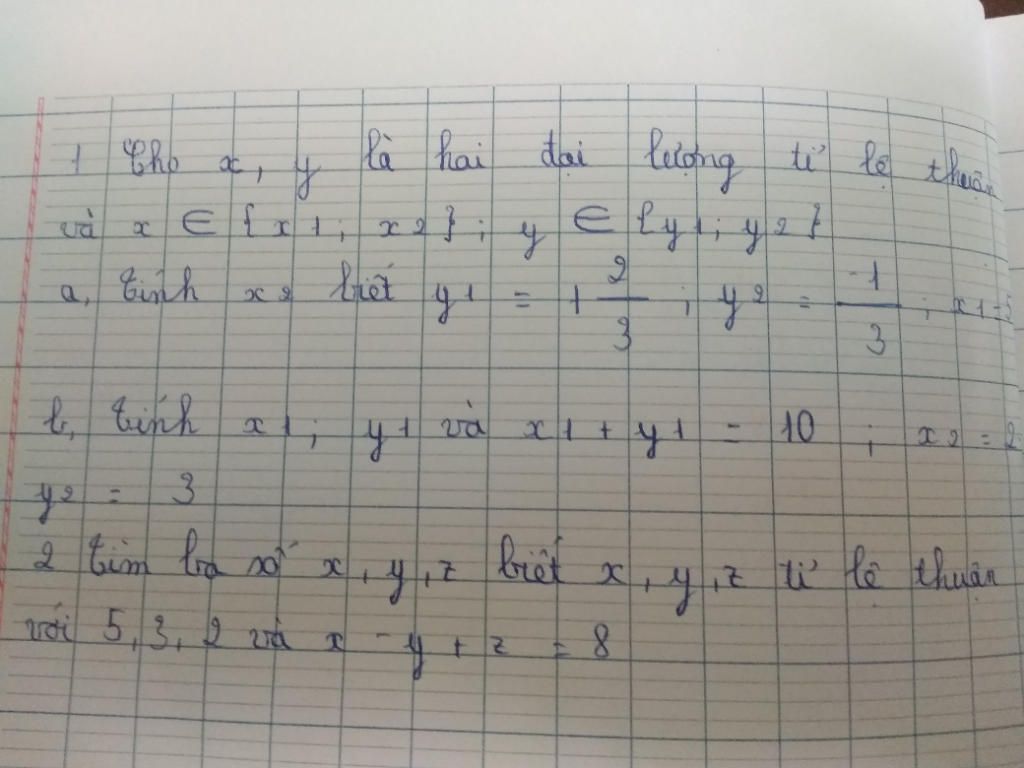 1 Cho x, y là hai đại lượng tỉ lệ thuận
và x ∈ {x1; x2}; y ∈ {y1; y2}
a, tính x2 biết y1 = 1 2/3 ; y2 = -1/3 ; x1 = 5
b, tính x1; y1 và x1 + y1 = 10 ; x2 = 2
y2 = 3
2 tìm ba số x, y, z biết x, y, z tỉ lệ thuận
với 5, 3, 2 và x - y + z = 8